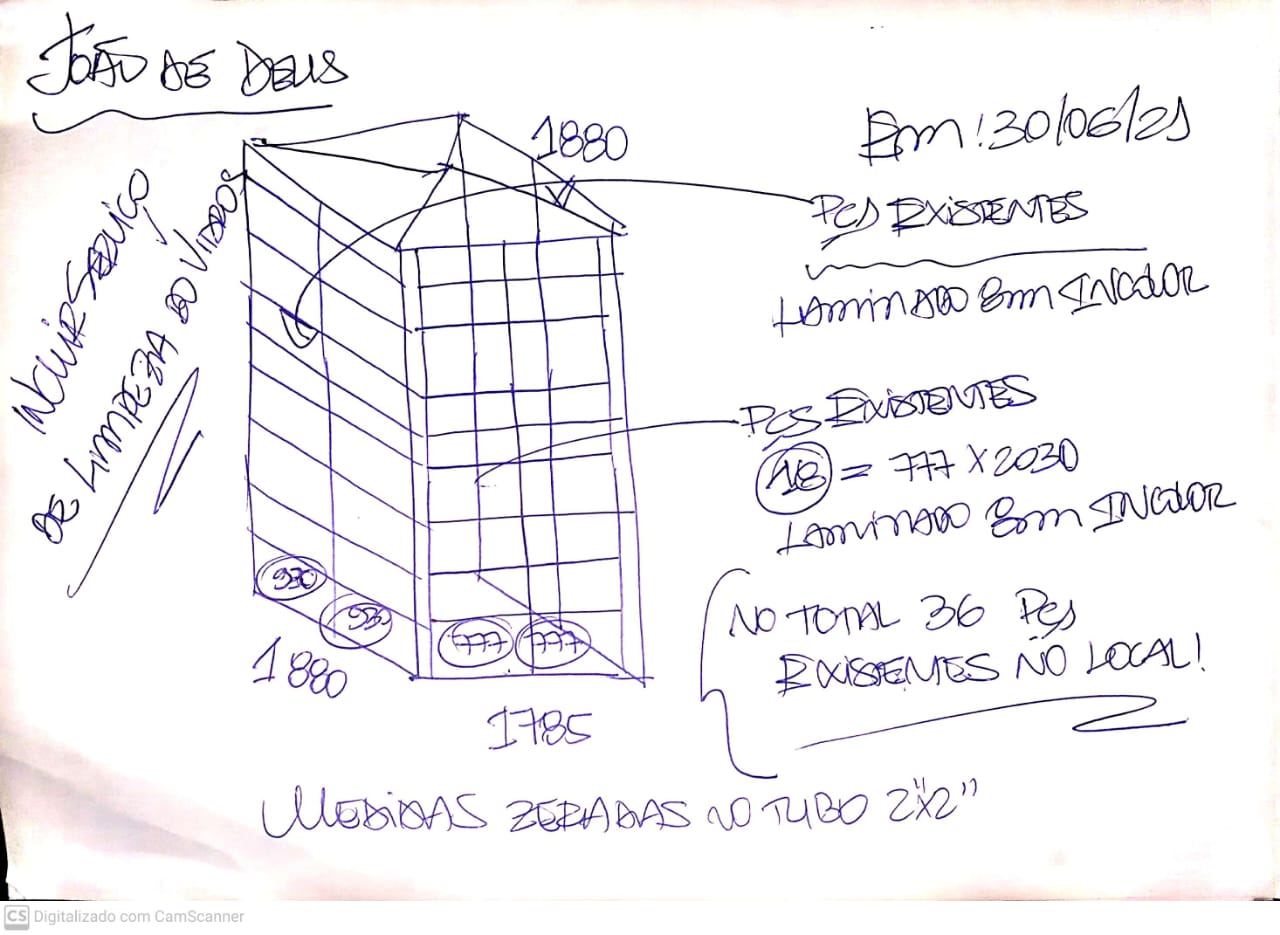 JOÃO DE DEUS
Em: 30/06/21
INCLUIR SERVIÇO
DE LIMPEZA DO VIDROS
1880
PÇS EXISTENTES
LAMINADO 8mm INCOLOR
PÇS EXISTENTES
18 = 777 X 2030
LAMINADO 8mm INCOLOR
930
930
777
777
1880
1785
NO TOTAL 36 PÇS
EXISTENTES NO LOCAL!
MEDIDAS ZERADAS NO TUBO 2"X2"
CS Digitalizado com CamScanner